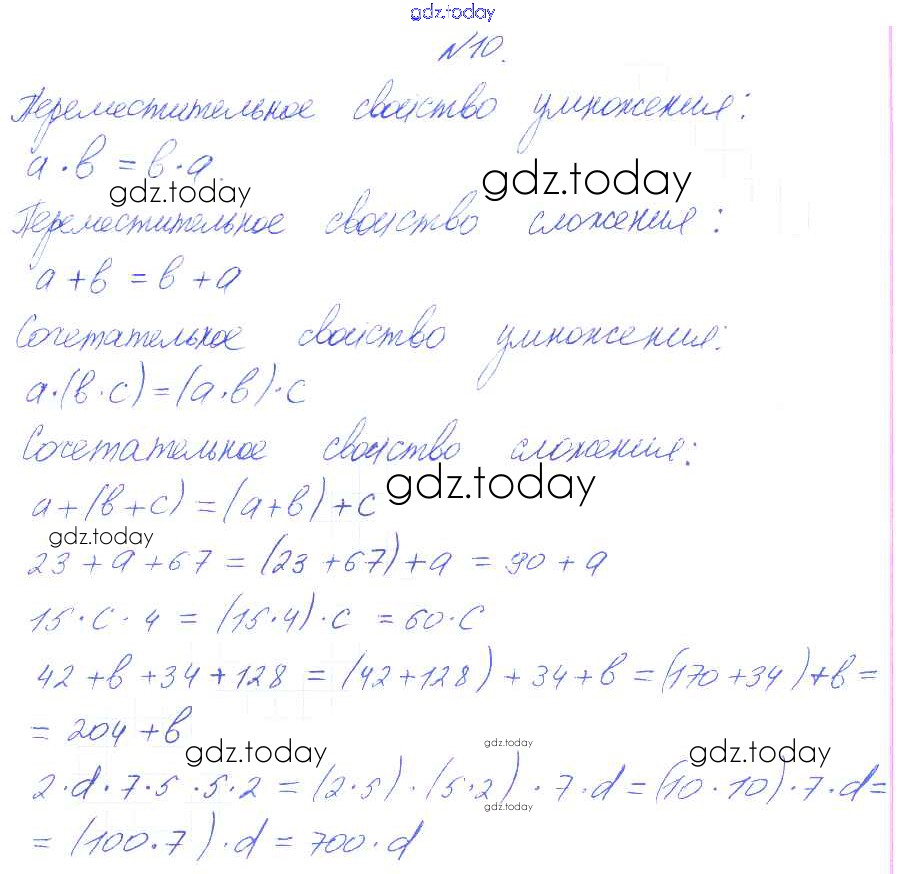 gdz.today
№10.
Переместительное свойство умножения:
a · в = в · a.
gdz.today
gdz.today
Переместительное свойство сложения:
a + в = в + a
Сочетательное свойство умножения:
a · (в · c) = (a · в) · c
Сочетательное свойство сложения:
gdz.today
a + (в + c) = (a + в) + c
gdz.today
23 + a + 67 = (23 + 67) + a = 90 + a
15 · c · 4 = (15 · 4) · c = 60 · c
42 + в + 34 + 128 = (42 + 128) + 34 + в = (170 + 34) + в =
= 204 + в
gdz.today
gdz.today
gdz.today
2 · d · 7 · 5 · 5 · 2 = (2 · 5) · (5 · 2) · 7 · d = (10 · 10) · 7 · d =
gdz.today
= (100 · 7) · d = 700 · d